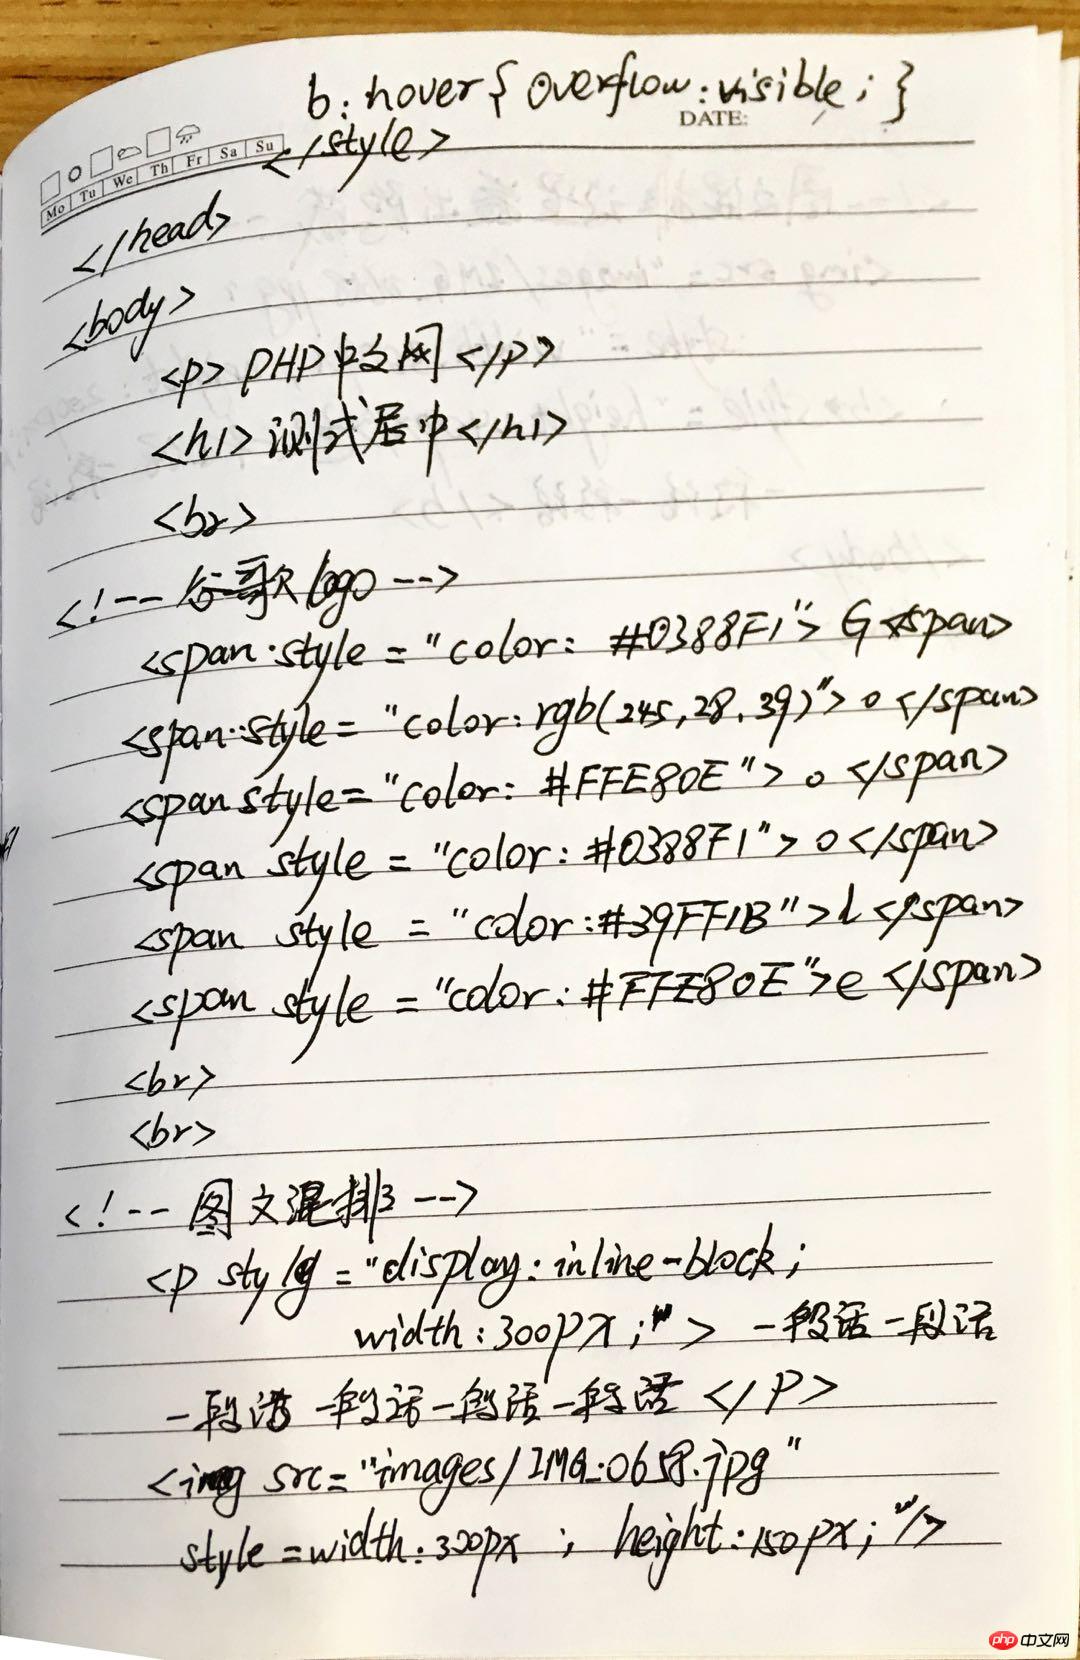 b:hover{overflow:visible;}
DATE:
</style>
Mo Tu We Th Fr Sa Su
</head>
<body>
<p>PHP中文网</p>
<h1>测试居中</h1>
<br>
<!-- 谷歌logo -->
<span style="color: #0388F1">G<span>
<span style="color:rgb(245,28,39)">o</span>
<span style="color: #FFE80E">o</span>
<span style="color:#0388F1">o</span>
<span style="color:#39FF1B">l</span>
<span style="color:#FFE80E">e</span>
<br>
<br>
<!-- 图文混排3 -->
<p style="display:inline-block;
width:300px;"> 一段话一段话
一段话一段话一段话一段话</p>
<img src="images/IMG_0658.jpg"
style=width:300px; height:150px;"/>
php 中文网